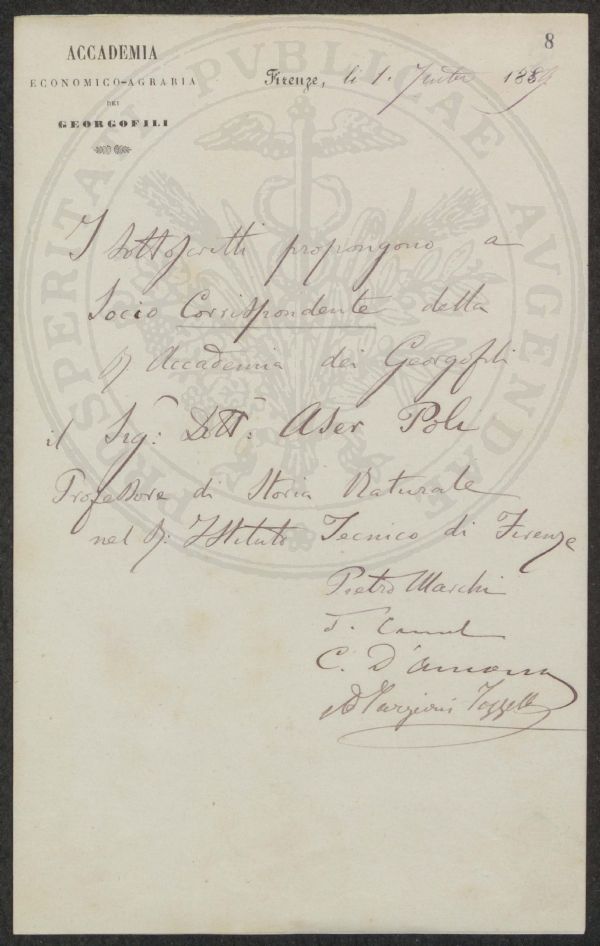 8
ACCADEMIA
ECONOMICO-AGRARIA
DEI
GEORGOFILI
Firenze, li 1. 188
PROSPERITATI PVBLICAE AVGENDAE
I sottoscritti propongono a
Socio Corrispondente della
R. Accademia dei Georgofili
il Sig: Dott: Aser Poli
Professore di Storia Naturale
nel R. Istituto Tecnico di Firenze
Pietro Marchi
C. D'Ancona
Ad Targioni Tozzetti